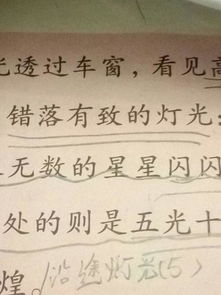 光透过车窗，看见高
错落有致的灯光：
无数的星星闪闪
处的则是五光十
煌。沿途灯光(5)